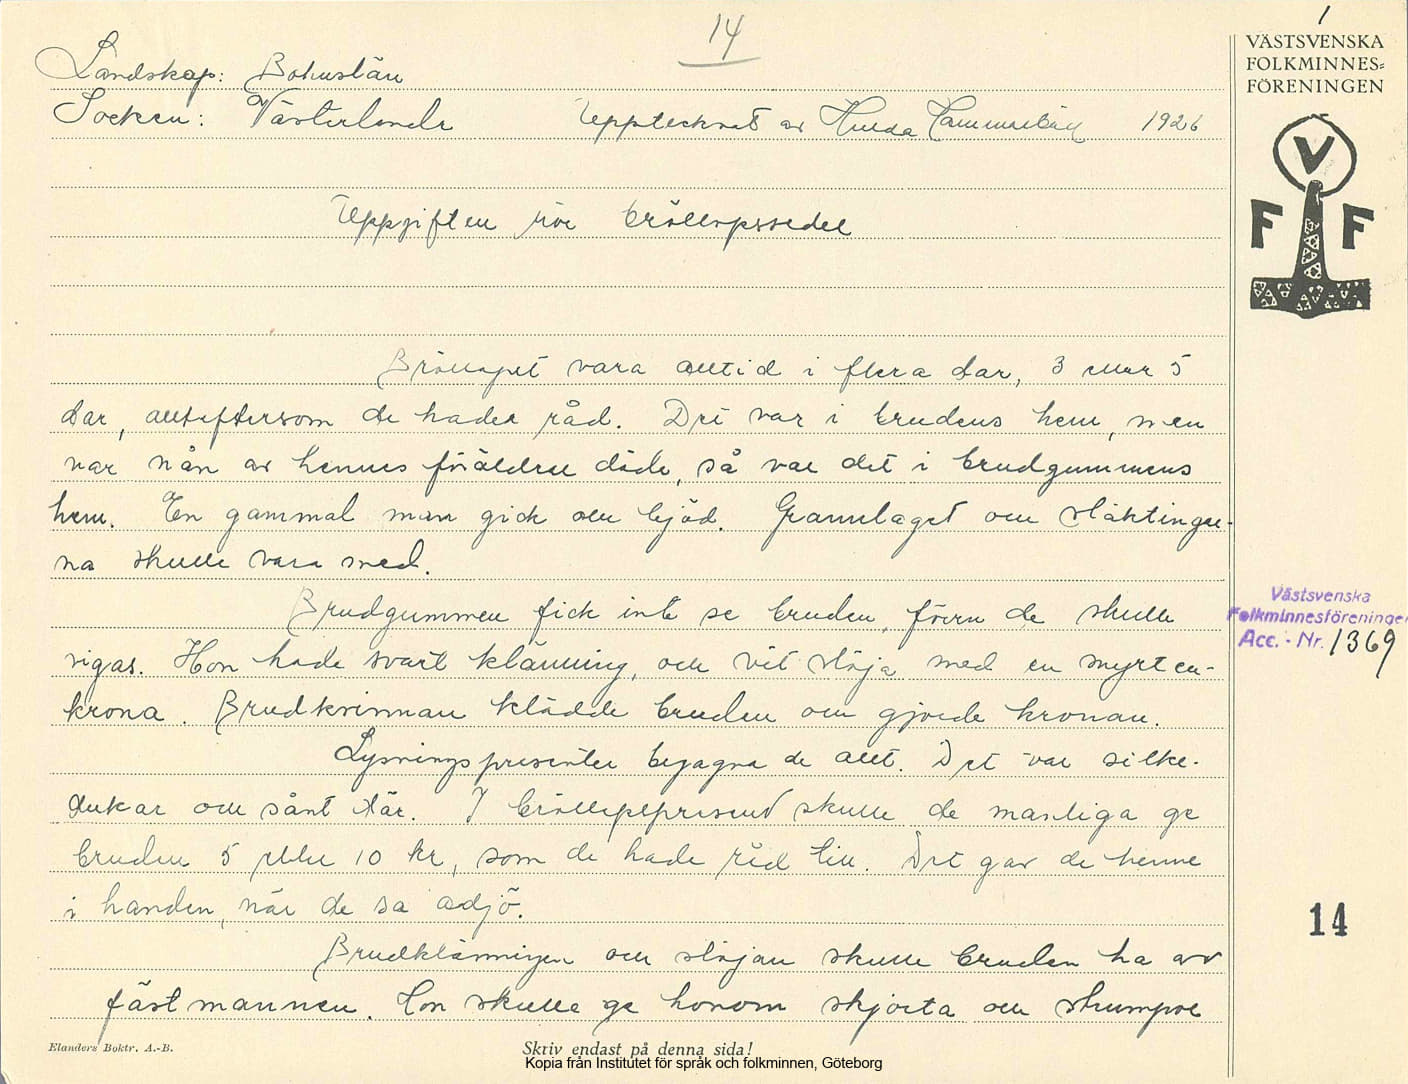 14
1
VÄSTSVENSKA
FOLKMINNES=
FÖRENINGEN
V
F F
Landskap: Bohuslän
Socken: Västerlanda Upptecknat av Hulda Hammarbäck 1926
Uppgifter rör bröllopsseder
Bröllopet vara alltid i flera dar, 3 eller 5
dar, allteftersom de hade råd. Det var i brudens hem, men
var nån av hennes föräldrar döde, så var det i brudgummens
hem. En gammal man gick och bjöd. Grannlaget och släktingar-
na skulle vara med.
Brudgummen fick inte se bruden, förrn de skulle
vigas. Hon hade svart klänning, och vit slöja med en myrten-
krona. Brudkvinnan klädde bruden och gjorde kronan.
Lysningspresenter begagna de allt. Det var silke-
dukar och sånt där. I bröllopspresent skulle de manliga ge
bruden 5 eller 10 kr, som de hade råd till. Det gav de henne
i handen, när de sa adjö.
Brudklänningen och slöjan skulle bruden ha av
fästmannen. Hon skulle ge honom skjorta och strumpor
Västsvenska
Folkminnesföreningen
Acc. - Nr. 1369
14
Elanders Boktr. A.-B.
Skriv endast på denna sida!
Kopia från Institutet för språk och folkminnen, Göteborg